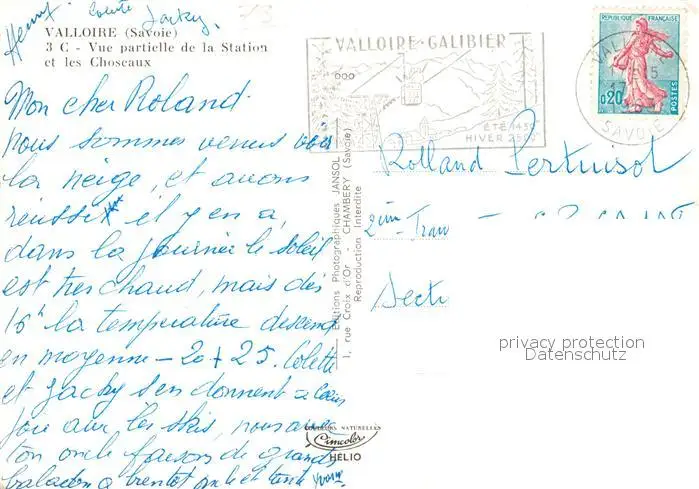 Henri Colette Jacky.
VALLOIRE (Savoie)
3 C - Vue partielle de la Station
et les Choseaux
Mon cher Roland.
nous sommes venus voir
la neige, et avons
réussi il y en a,
dans la journée le soleil
est très chaud, mais dès
16h la température descend
en moyenne - 20 + 25. Colette
et Jacky s'en donnent à coeur
joie avec les skis, nous avec
ton oncle faisons de grandes
balades à bientôt oncle et tante Yvonne
Editions Photographiques JANSOL
1, rue Croix d'Or - CHAMBERY (Savoie)
Reproduction Interdite
VALLOIRE-GALIBIER
ÉTÉ 1430
HIVER
REPUBLIQUE FRANÇAISE
0,20
POSTES
VALLOIRE
17
SAVOIE
Rolland Pertuisot
2ème Tran
Sect
privacy protection
Datenschutz
COULEURS NATURELLES
Cimcolor
HELIO